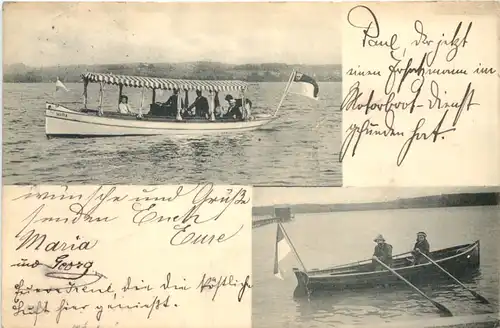 Paul, der jetzt
einen Ersatzmann im
Motorboot-Dienst
gefunden hat.
wünsche und Grüße
senden Euch
Eure
Maria
und Georg
die die köstliche
Luft hier genießt.